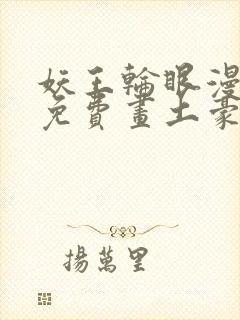 妖王輪眼漫
免費畫土豪
揚萬里